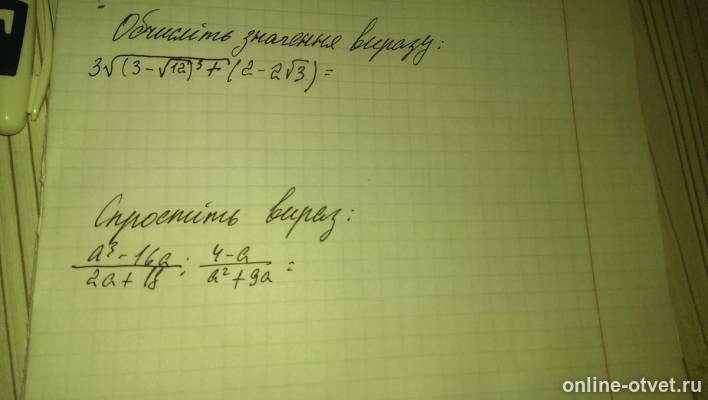 Обчисліть значення виразу:
3√(3-√12)³ + (2-2√3) =
Спростіть вираз:
a³-16a / 2a+18 : 4-a / a²+9a =
online-otvet.ru